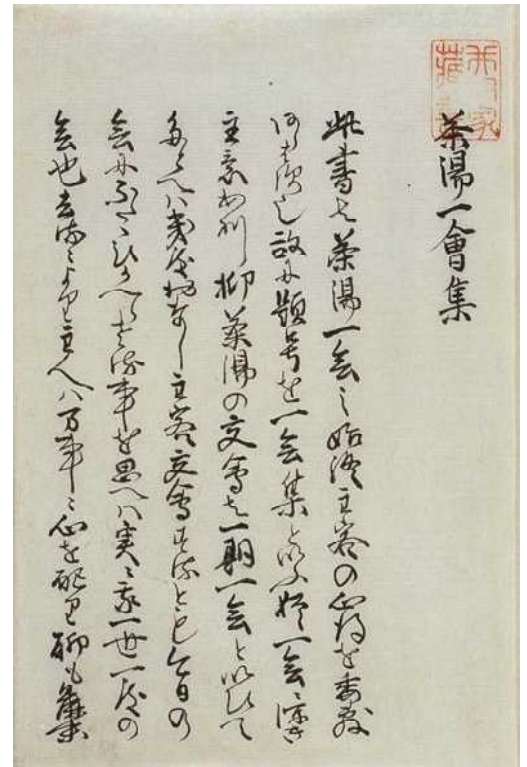 茶湯一會集
此書は茶湯一会之始終主客の心得を委敷
あらはす也故に題号を一会集といふ猶一会ニ深き
主意あり抑茶湯の交會は一期一会といひて
たとへハ幾度おなし主客交會するとも今日の
会にふたゝひかへらさる事を思へハ実ニ我一世一度の
会也去るにより主人ハ万事ニ心を配り聊も麁